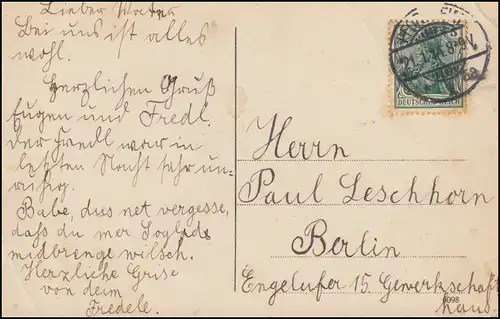 Lieber Vater
Bei uns ist alles
wohl.
Herzlichen Gruß
Eugen und Fredl.
Der Friedl war in
letzten Nacht sehr un-
ruhig.
Babe, dus net vergesse,
daß du mer
midbrenge wilsch.
Herzliche Grise
von deim
Fredele.
DEUTSCHES REICH
Herrn
Paul Leschhorn
Berlin
Engelufer 15. Gewerkschafts
haus.
6098